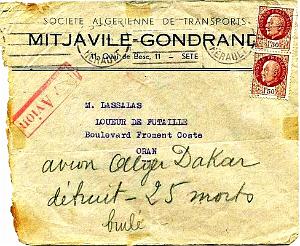 SOCIÉTÉ ALGERIENNE DE TRANSPORTS
MITJAVILE-GONDRAND
11, Quai de Bosc, 11 - SETE
HERAULT
1F50
1F50
M. LASSALAS
LOUEUR DE FUTAILLE
Boulevard Froment Coste
ORAN
avion Alger Dakar
détruit - 25 morts
brulé